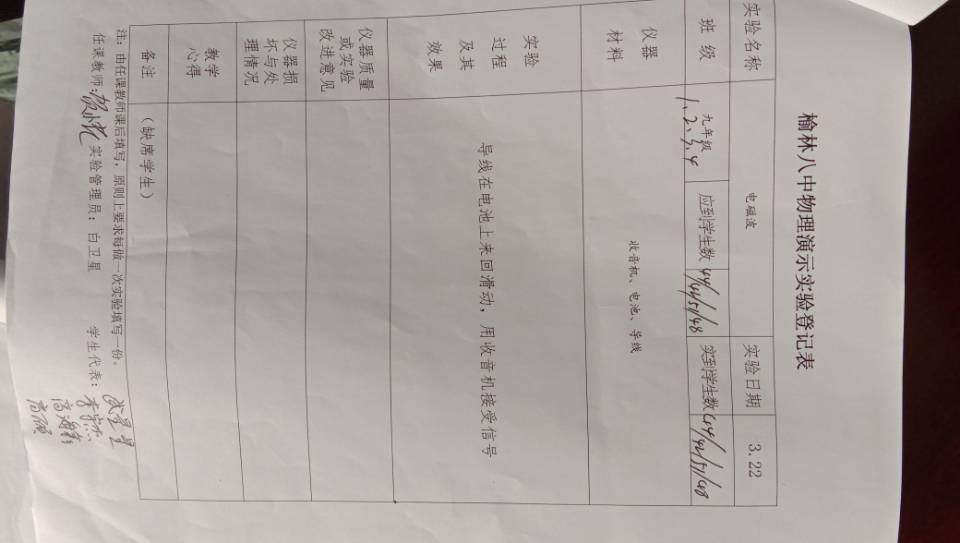 榆林八中物理演示实验登记表
实验名称 电磁波 实验日期 3.22
班级 九年级 1、2、3、4 应到学生数 44/44/51/48 实到学生数 44/51/48
仪器 材料 收音机、电池、导线
实验
过程
及其
效果
导线在电池上来回滑动，用收音机接受信号
仪器质量
或实验
改进意见
仪器损
坏与处
理情况
教学
心得
备注 （缺席学生）
注：由任课教师课后填写，原则上要求每做一次实验填写一份。
任课教师： 实验管理员：白卫星 学生代表：